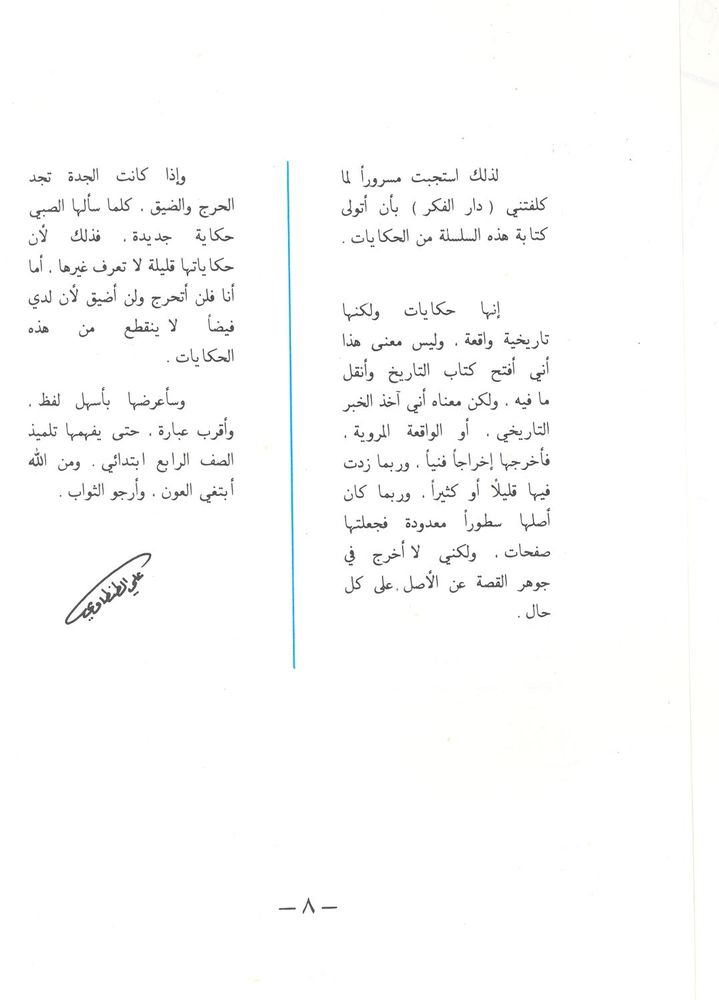 لذلك استجبت مسروراً لما
كلفتني ( دار الفكر ) بأن أتولى
كتابة هذه السلسلة من الحكايات .
إنها حكايات ولكنها
تاريخية واقعة . وليس معنى هذا
أني أفتح كتاب التاريخ وأنقل
ما فيه . ولكن معناه أني آخذ الخبر
التاريخي . أو الواقعة المروية .
فأخرجها إخراجاً فنياً . وربما زدت
فيها قليلًا أو كثيراً . وربما كان
أصلها سطوراً معدودة فجعلتها
صفحات . ولكني لا أخرج في
جوهر القصة عن الأصل . على كل
حال .
وإذا كانت الجدة تجد
الحرج والضيق . كلما سألها الصبي
حكاية جديدة . فذلك لأن
حكاياتها قليلة لا تعرف غيرها . أما
أنا فلن أتحرج ولن أضيق لأن لدي
فيضاً لا ينقطع من هذه
الحكايات .
وسأعرضها بأسهل لفظ .
وأقرب عبارة . حتى يفهمها تلميذ
الصف الرابع ابتدائي . ومن الله
أبتغي العون . وأرجو الثواب .
علي الطنطاوي
— ٨ —